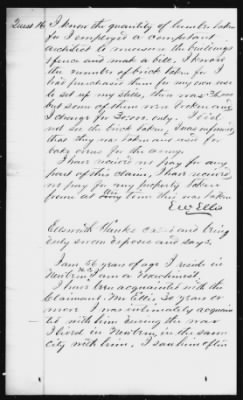 Quest 16. I know the quantity of lumber taken
for I employed a competant
architect to measure the buildings
& fence and make a bill. I know
the number of brick taken for I
had purchased them for my own use
to set up my stills, there was
but some of them were broken and
I charge for 20.000. only. I did
not see the brick taken, I was informed
that they was taken and used for
bake ovens for the army.
I have recived no pay for any
part of this claim, I have recived
no pay for my property taken
from at any time this was taken
E W Ellis
Ellsworth Hawks called and being
duly sworn deposes and says.
I am 56 years of age I reside in
Newbern N.C. I am a Machinist.
I have been acquainted with the
Claimant Mr Ellis 20 years or
more I was intimately acquain-
ted with him during the war
I lived in Newbern in the same
city with him, I saw him often